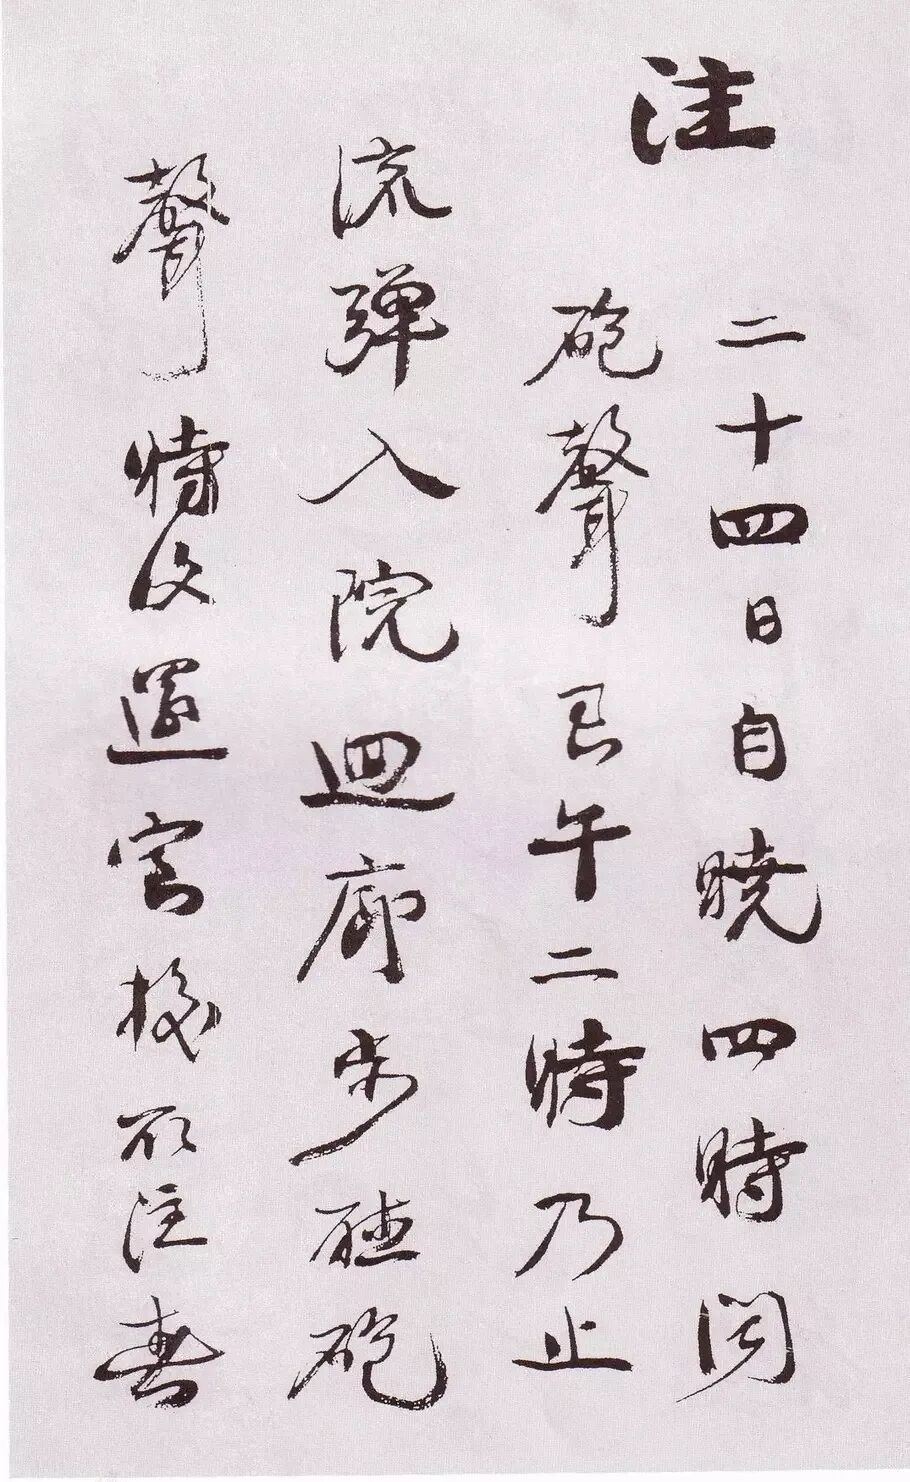 注
二十四日自曉四時聞
砲聲午二時乃止
流彈入院迴廊步聽砲
聲時復還室校所注書